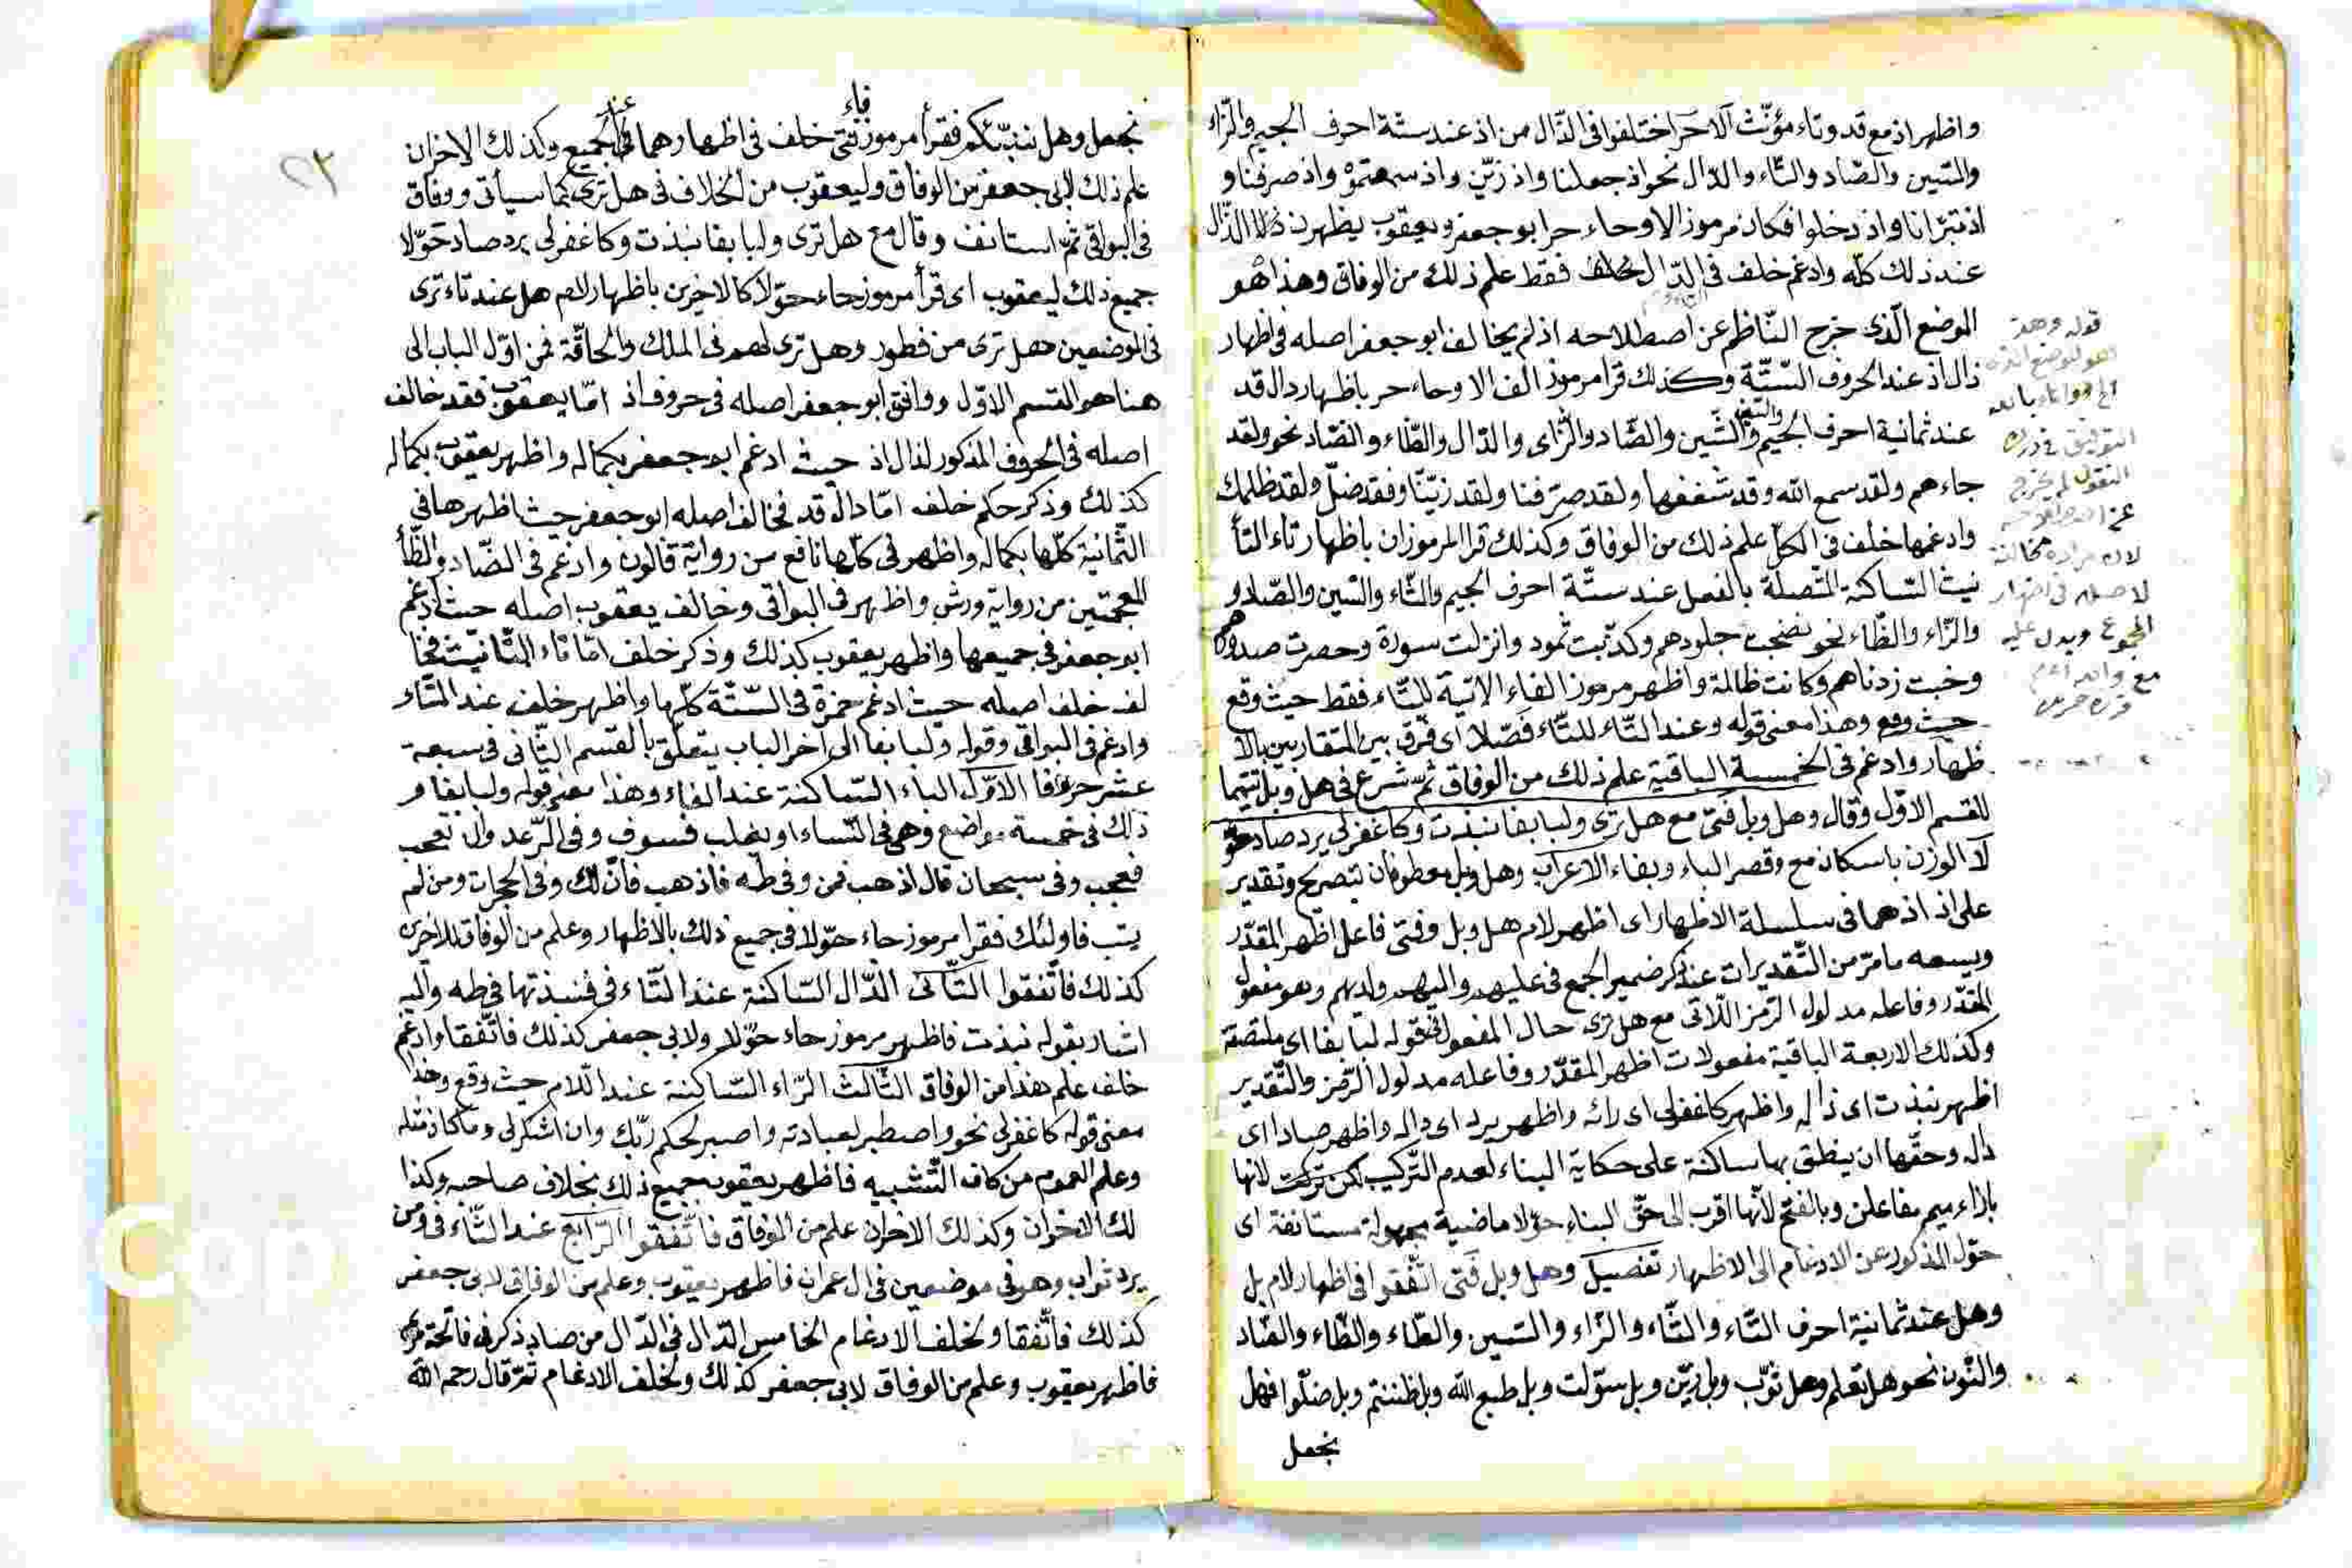 واظهر اذ مع قد وتاء مؤنّث الا حز اختلفوا فى الذّال من اذ عند ستّة احرف الجيم والزّاء
والسّين والصّاد والتّاء والدّال نحو اذ جعلنا واذ زيّن واذ سمعتموه واذ صرفنا و
اذ تبرّا نا واذ دخلوا فكان مرموز الا وحاء حر ابو جعفر ويعقوب يظهرن الذّال
عند ذلك كلّه وادغم خلف فى الدّال فقط علم ذلك من الوفاق وهذا هو
الموضع الّذى خرج النّاظم عن اصطلاحه اذ لم يخالف ابو جعفر اصله فى اظهار
ذال اذ عند الحروف السّتّة وكذلك قرا مرموز الف الا وحاء حر باظهار دال قد
عند ثمانية احرف الجيم والسّين والشّين والصّاد والزّاى والذّال والظّاء والضّاد نحو ولقد
جاءهم ولقد سمع الله وقد شغفها ولقد صرّفنا ولقد زيّنّا وفقد ضلّ ولقد ظلمك
وادغمها خلف فى الكلّ علم ذلك من الوفاق وكذلك قرا المرموزان باظهار تاء التأ
نيث السّاكنة المتّصلة بالفعل عند ستّة احرف الجيم والثّاء والسّين والصّاد و
والزّاء والظّاء نحو نضجت جلودهم وكذّبت ثمود وانزلت سورة وحصرت صدورهم
وخبت زدناهم وكانت ظالمة واظهر مرموز الفاء الاتية للثّاء فقط حيث وقع
حيث وقع وهذا معنى قوله وعند الثّاء للتّاء فصّلا اى فرق بين المتقاربين بالا
ظهار وادغم فى الخمسة الباقية علم ذلك من الوفاق ثمّ شرع فى هل وبل تتميما
للقسم الاوّل وقال وهل وبل فتى مع هل ترى ولبا بفا نبذت وكاغفر لى يرد صاد حو
لا الوزن باسكان مع وقصر الباء وبفاء الاعراب وهل وبل معطوفان بتصريح وتقدير
على اذ اذ هما فى سلسلة الاظهار اى اظهر لام هل وبل وفتى فاعل اظهر المقدّر
ويسعه ما مرّ من التّقديرات عند ذكر ضمير الجمع فى عليهم واليهم ولديهم وهو مفعول
المقدّر وفاعله مدلول الرّمز الآتى مع هل ترى حال المفعول قوله لبا بفا اى ملتصقة
وكذلك الاربعة الباقية مفعولات اظهر المقدّر وفاعله مدلول الرّمز والتّقدير
اظهر نبذت اى ذاله واظهر كاغفر لى اى رائه واظهر يرد اى داله واظهر صاد اى
داله وحقّها ان ينطق بها ساكنة على حكاية البناء لعدم التّركيب لكن تركت لانها
بازاء ميم مفاعلن وبالفتح لأنّها اقرب الى حقّ البناء حوّلا ماضية مجهولة مستانفة اى
حوّل المذكور عن الادغام الى الاظهار تفصيل وهل وبل فتى اتّفقوا فى اظهار لام بل
وهل عند ثمانية احرف التّاء والثّاء والزّاء والسّين والطّاء والظّاء والضّاد
والنّون نحو هل تعلم وهل ثوّب وبل زيّن وبل سوّلت وبل طبع الله وبل ظننتم وبل ضلّوا فهل
نجعل
نجعل وهل ننبّئكم فقرأ مرموز فاء فتى خلف فى اظهارهما عند الجميع وكذلك الاخران
علم ذلك لابى جعفر من الوفاق وليعقوب من الخلاف فى هل ترى كما سيأتى ووفاق
فى البواقى ثمّ استانف وقال مع هل ترى ولبا بفا نبذت وكاغفر لى يرد صاد حوّلا
جميع ذلك ليعقوب اى قرأ مرموز حاء حوّلا كالاخرين باظهار لام هل عند تاء ترى
فى الموضعين هل ترى من فطور وهل ترى لهم فى الملك والحاقّة فمن اوّل الباب الى
هنا هو القسم الاوّل ووافق ابو جعفر اصله فى حروف اذ امّا يعقوب فقد خالف
اصله فى الحروف المذكور لذال اذ حيث ادغم ابو جعفر بكماله واظهر يعقوب بكماله
كذلك وذكر حكم خلف امّا دال قد فخالف اصله ابو جعفر حيث اظهرها فى
الثّمانية كلّها بكماله واظهر فى كلّها نافع من رواية قالون وادغم فى الضّاد والظّاء
المعجمتين من رواية ورش واظهر فى البواقى وخالف يعقوب اصله حيث ادغم
ابو جعفر فى جميعها واظهر يعقوب كذلك وذكر خلف امّا تاء التّانيث فخا
لف خلف اصله حيث ادغم حمزة فى السّتّة كلّها واظهر خلف عند الثّاء
وادغم فى البواقى وقوله ولبا بفا الى آخر الباب يتعلّق بالقسم الثّانى فى سبعة
عشر حرفا الاوّل الباء السّاكنة عند الفاء وهذا معنى قوله ولبا بفا و
ذلك فى خمسة مواضع وهى فى النّساء او يغلب فسوف وفى الرّعد وان تعجب
فعجب وفى سبحان قال اذهب فمن وفى طه فاذهب فانّ لك وفى الحجرات ومن لم
يتب فاولئك فقرا مرموز حاء حوّلا فى جميع ذلك بالاظهار وعلم من الوفاق للاخرين
كذلك فاتّفقوا الثّانى الذّال السّاكنة عند التّاء فى فنبذتها فى طه واليه
اشار بقوله نبذت فاظهر مرموز حاء حوّلا ولابى جعفر كذلك فاتّفقا وادغم
خلف علم هذا من الوفاق الثّالث الرّاء السّاكنة عند الّلام حيث وقع وهذا
معنى قوله كاغفر لى نحو واصطبر لعبادته واصبر لحكم ربّك وان اشكر لى وما كان مثله
وعلم العموم من كاف التّشبيه فاظهر يعقوب جميع ذلك بخلاف صاحبه وكذا
لك الاخران وكذلك الاخران علم من الوفاق فاتّفقوا الرّابع عند الثّاء فى ومن
يرد ثواب وهو فى موضعين فى ال عمران فاظهر يعقوب وعلم من الوفاق لابى جعفر
كذلك فاتّفقا ولخلف الادغام الخامس الدّال فى الذّال من صاد ذكر فى فاتحة مريم
فاظهر يعقوب وعلم من الوفاق لابى جعفر كذلك ولخلف الادغام ثمّ قال رحمه الله
٢٣
قوله وهذا
هو الموضع الذى
لم يخرج
لاصله فى اظهار
المجموع ويدل عليه